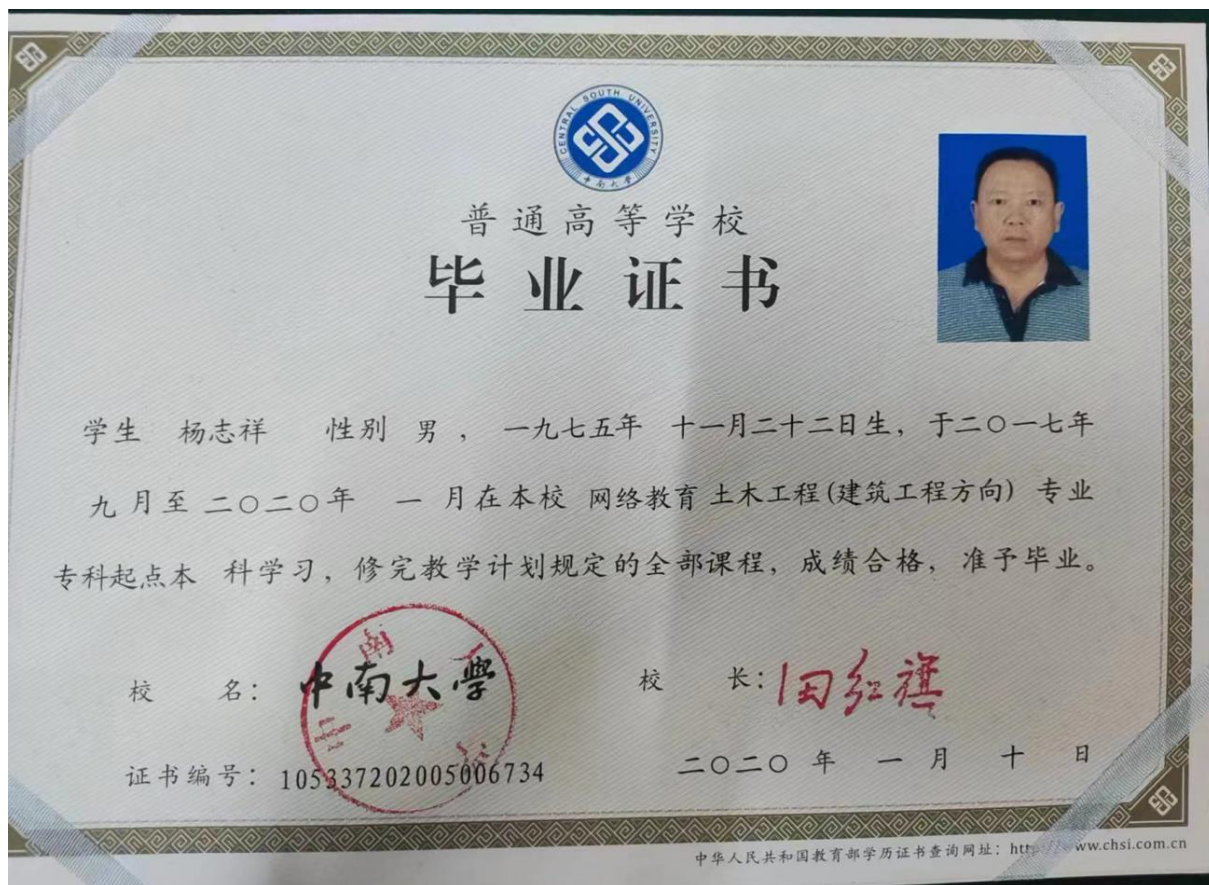 CENTRAL SOUTH UNIVERSITY
中南大学
普通高等学校
毕业证书
学生 杨志祥 性别 男 ， 一九七五年 十一月二十二日生，于二〇一七年
九 月至 二〇二〇年 一 月在本校 网络教育 土木工程(建筑工程方向) 专业
专科起点本 科学习，修完教学计划规定的全部课程，成绩合格，准予毕业。
校 名： 中南大學
校 长： 田红旗
证书编号： 105337202005006734
二〇二〇 年 一 月 十 日
中华人民共和国教育部学历证书查询网址： http www.chsi.com.cn